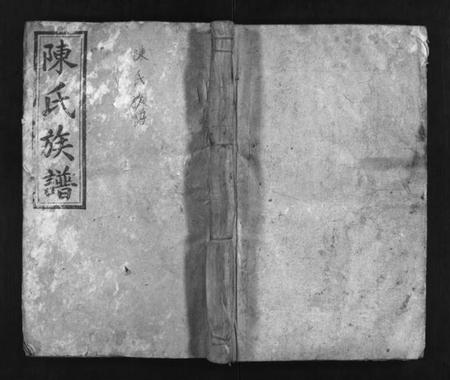 陳氏族譜
陳氏族譜